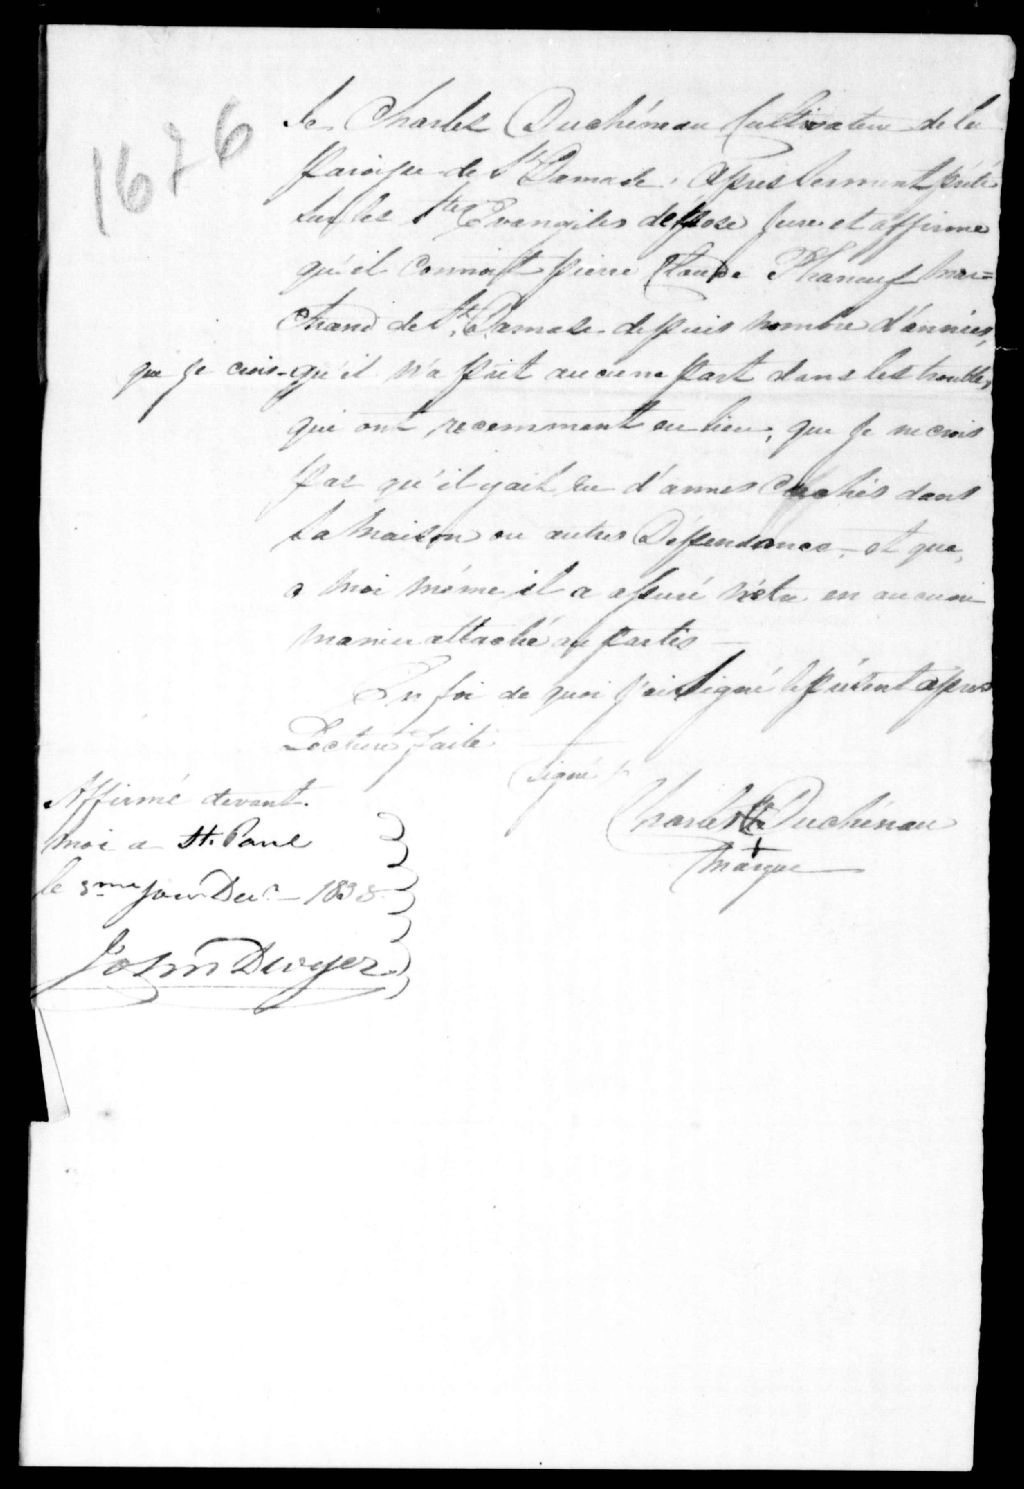 1676
Je Charles Duchéneau Cultivateur de la
Paroisse de St Damase. Après serment prêté
sur les Stes Evangiles dépose Jure et affirme
qu'il connoit pierre Claude Phaneuf mar=
chand de St. Damase depuis nombre d'années,
que je crois qu'il n'a fait aucune part dans les troubles,
qui ont recemment eu lieu, que Je ne crois
pas qu'il y ait eu d'armes cachés dans
sa maison ou autres Dépendance, et que,
a moi même il a assuré n'être en aucune
manier attaché au partis —
En foi de quoi j'ai Signé le présent après
Lecture faite
(signé)
Charles Duchénau
+
marque
Affirmé devant
moi a St. Paul
le 3me jour Decr. 1838
John Dwyer